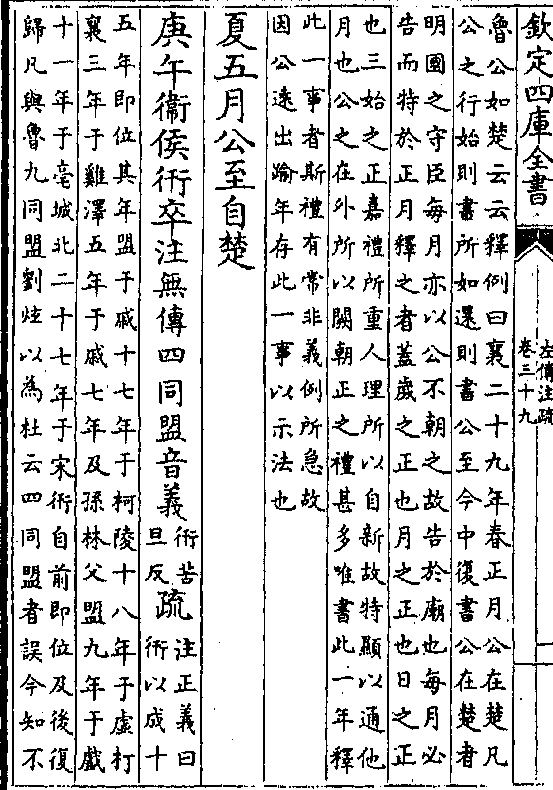 欽定四庫全書
左傳注疏
卷三十九
一
魯公如楚云云釋例曰襄二十九年春正月公在楚凡
公之行始則書所如還則書公至今中復書公在楚者
明國之守臣每月亦以公不朝之故告於廟也每月必
告而特於正月釋之者蓋歲之正也月之正也日之正
也三始之正嘉禮所重人理所以自新故特顯以通他
月也公之在外所以闕朝正之禮甚多唯書此一年釋
此一事者斯禮有常非義例所急故
因公遠出踰年存此一事以示法也
夏五月公至自楚
庚午衞侯衎卒注無傳四同盟音義
衎苦
旦反
疏
注正義曰
衎以成十
五年即位其年盟于戚十七年于柯陵十八年于虛朾
襄三年于雞澤五年于戚七年及孫林父盟九年于戲
十一年于亳城北二十七年于宋衎自前即位及後復
歸凡與魯九同盟劉炫以為杜云四同盟者誤今知不